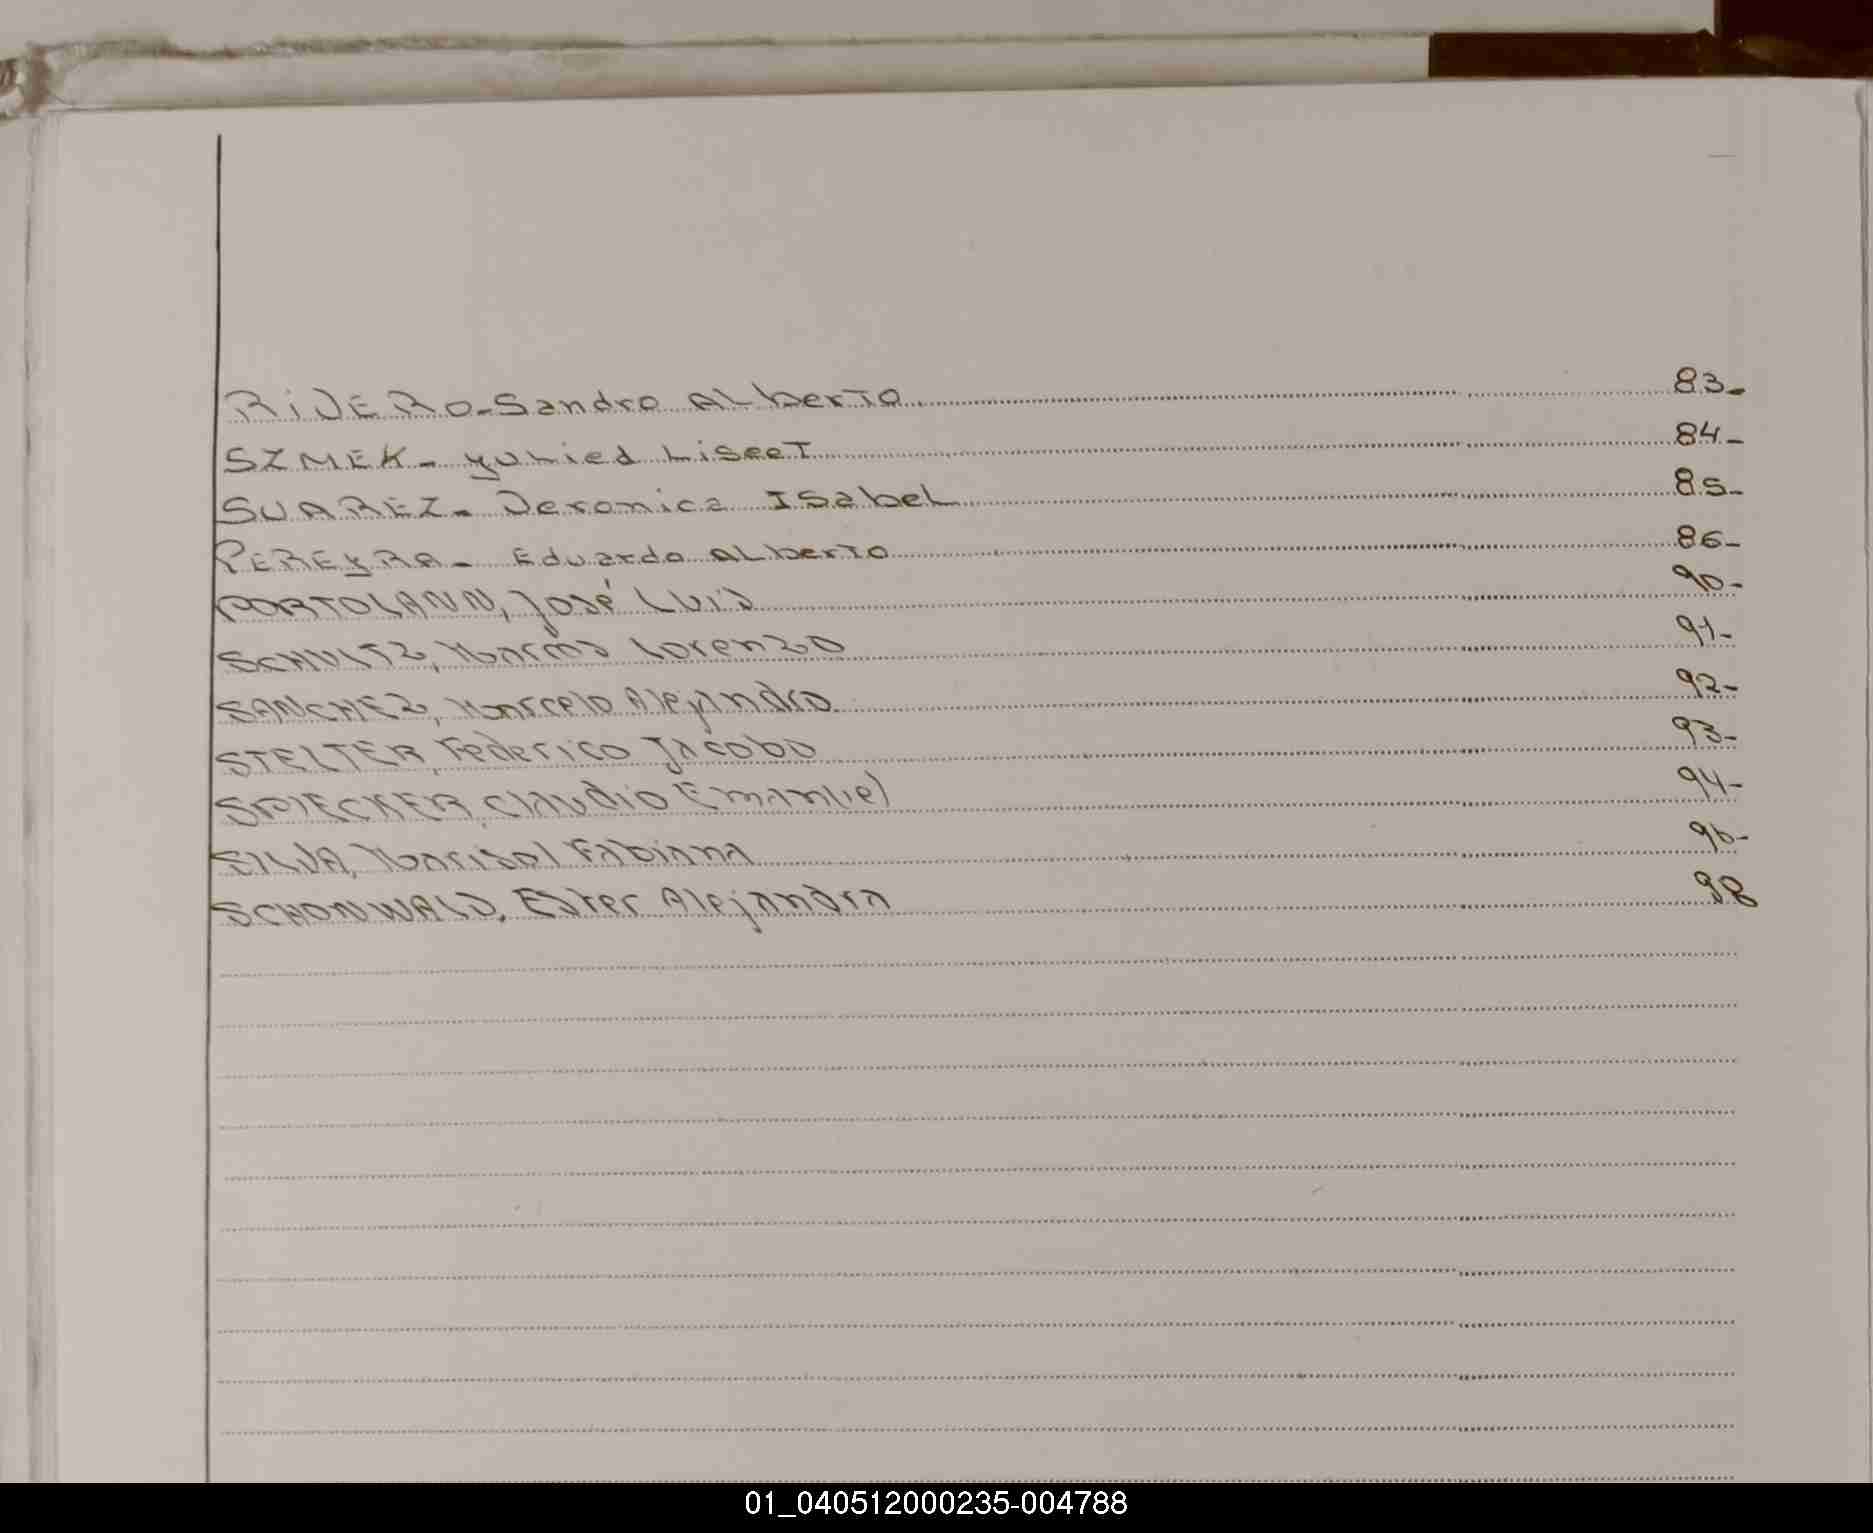 RIVERO-Sandro ALberTo 83-
SZMEK- yuLied LiseeT 84-
SUAREZ- Veronica ISabeL 85-
PEREyRA- Eduardo ALberTo 86-
PORTOLANN, José Luis 90-
SCHULTZ, Marcos Lorenzo 91-
SANCHEZ, Marcelo Alejandro 92-
STELTER, Federico Jacobo 93-
SPIECKER, Claudio Emanuel 94-
SILVA, Marisol Fabiana 96-
SCHONWALD, Ester Alejandra 98
01_040512000235-004788